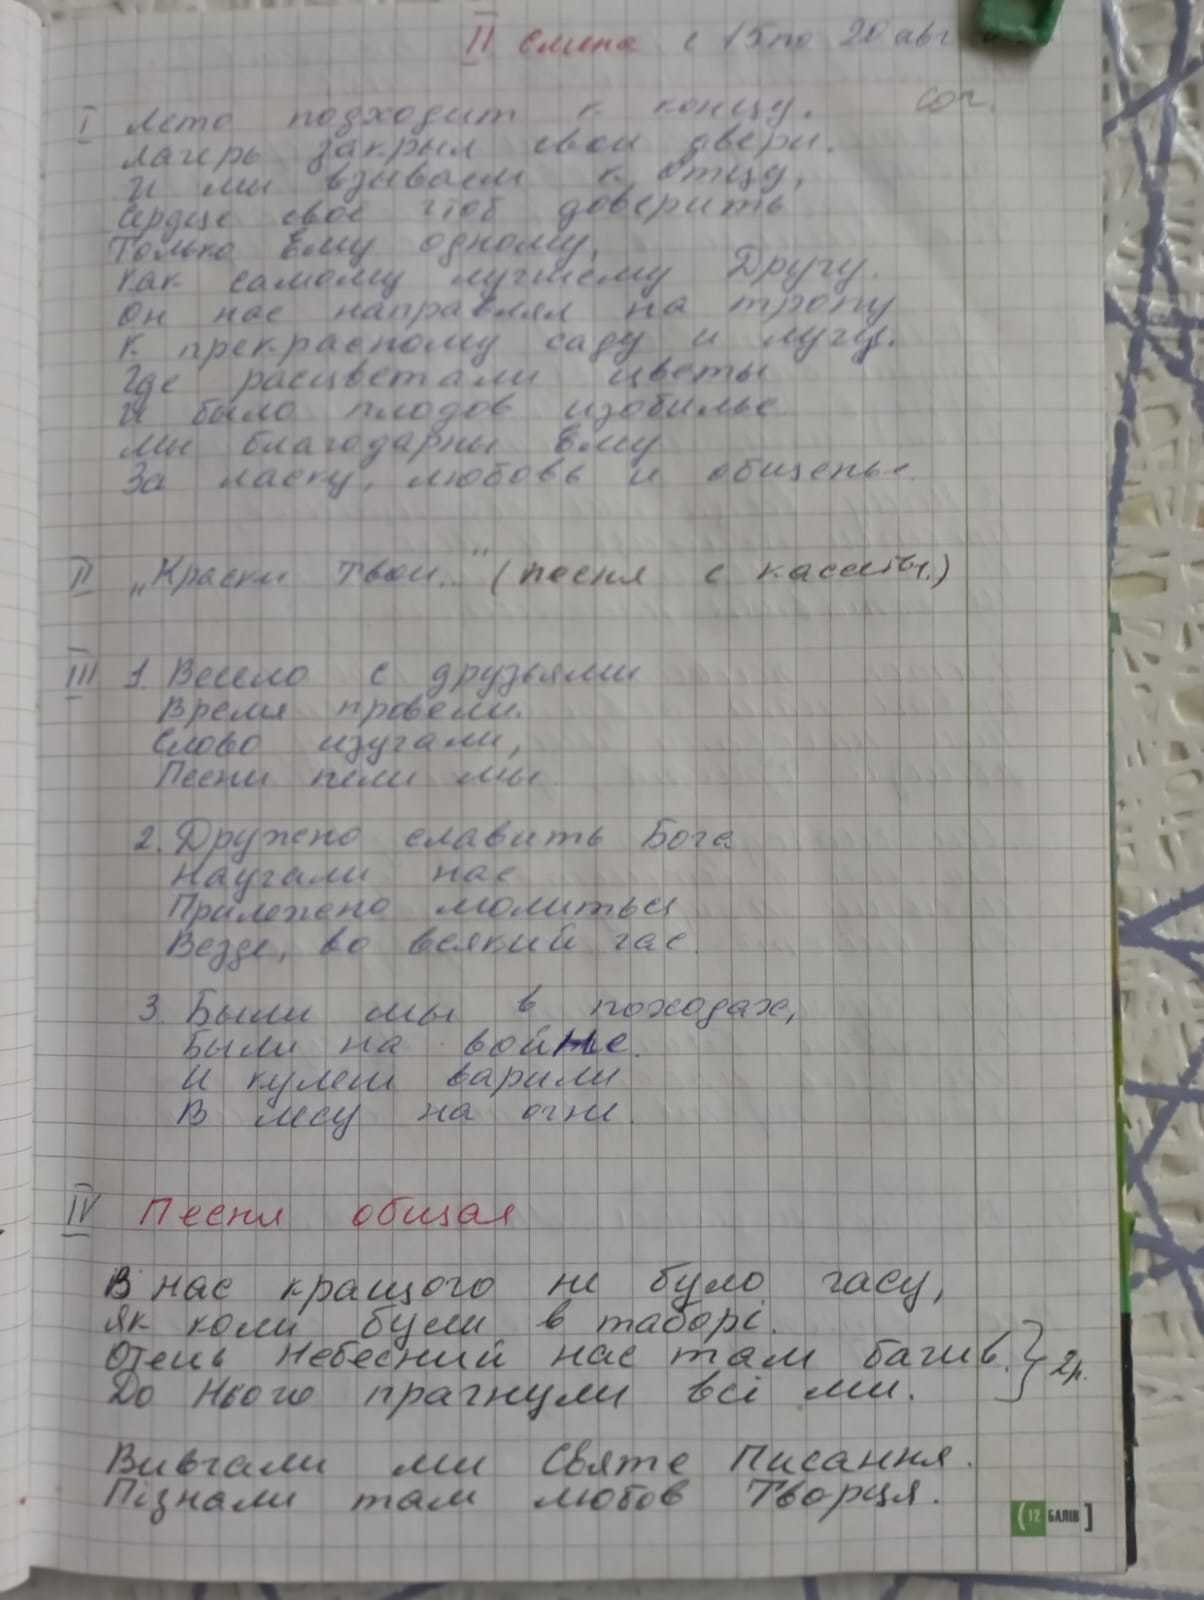 II смена с 15 по 20 авг
соч.
I Лето подходит к концу.
Лагерь закрыл свои двери.
И ми взываем к Отцу,
Сердце свое чтоб доверить
Только Ему одному,
Как самому лучшему Другу.
Он нас направлял на тропу
К прекрасному саду и лугу.
Где расцветали цветы
И было плодов изобилье
Мы благодарны Ему
За ласку, любовь и общенье.
II „Краски твои..." (песня с кассеты.)
III 1. Весело с друзьями
Время провели.
Слово изучали,
Песни пели мы.
2. Дружно славить Бога
Научали нас
Прилежно молиться
Везде, во всякий час.
3. Были мы в походах,
Были на войне.
И кулеш варили
В лесу на огне.
IV Песня общая
В нас кращого не було часу,
Як коли були в таборі.
Отець Небесний нас там бачив. } 2р.
До Нього прагнули всі ми.
Вивчали ми Святе Писання.
Пізнали там любов Творця.
(12 БАЛІВ]